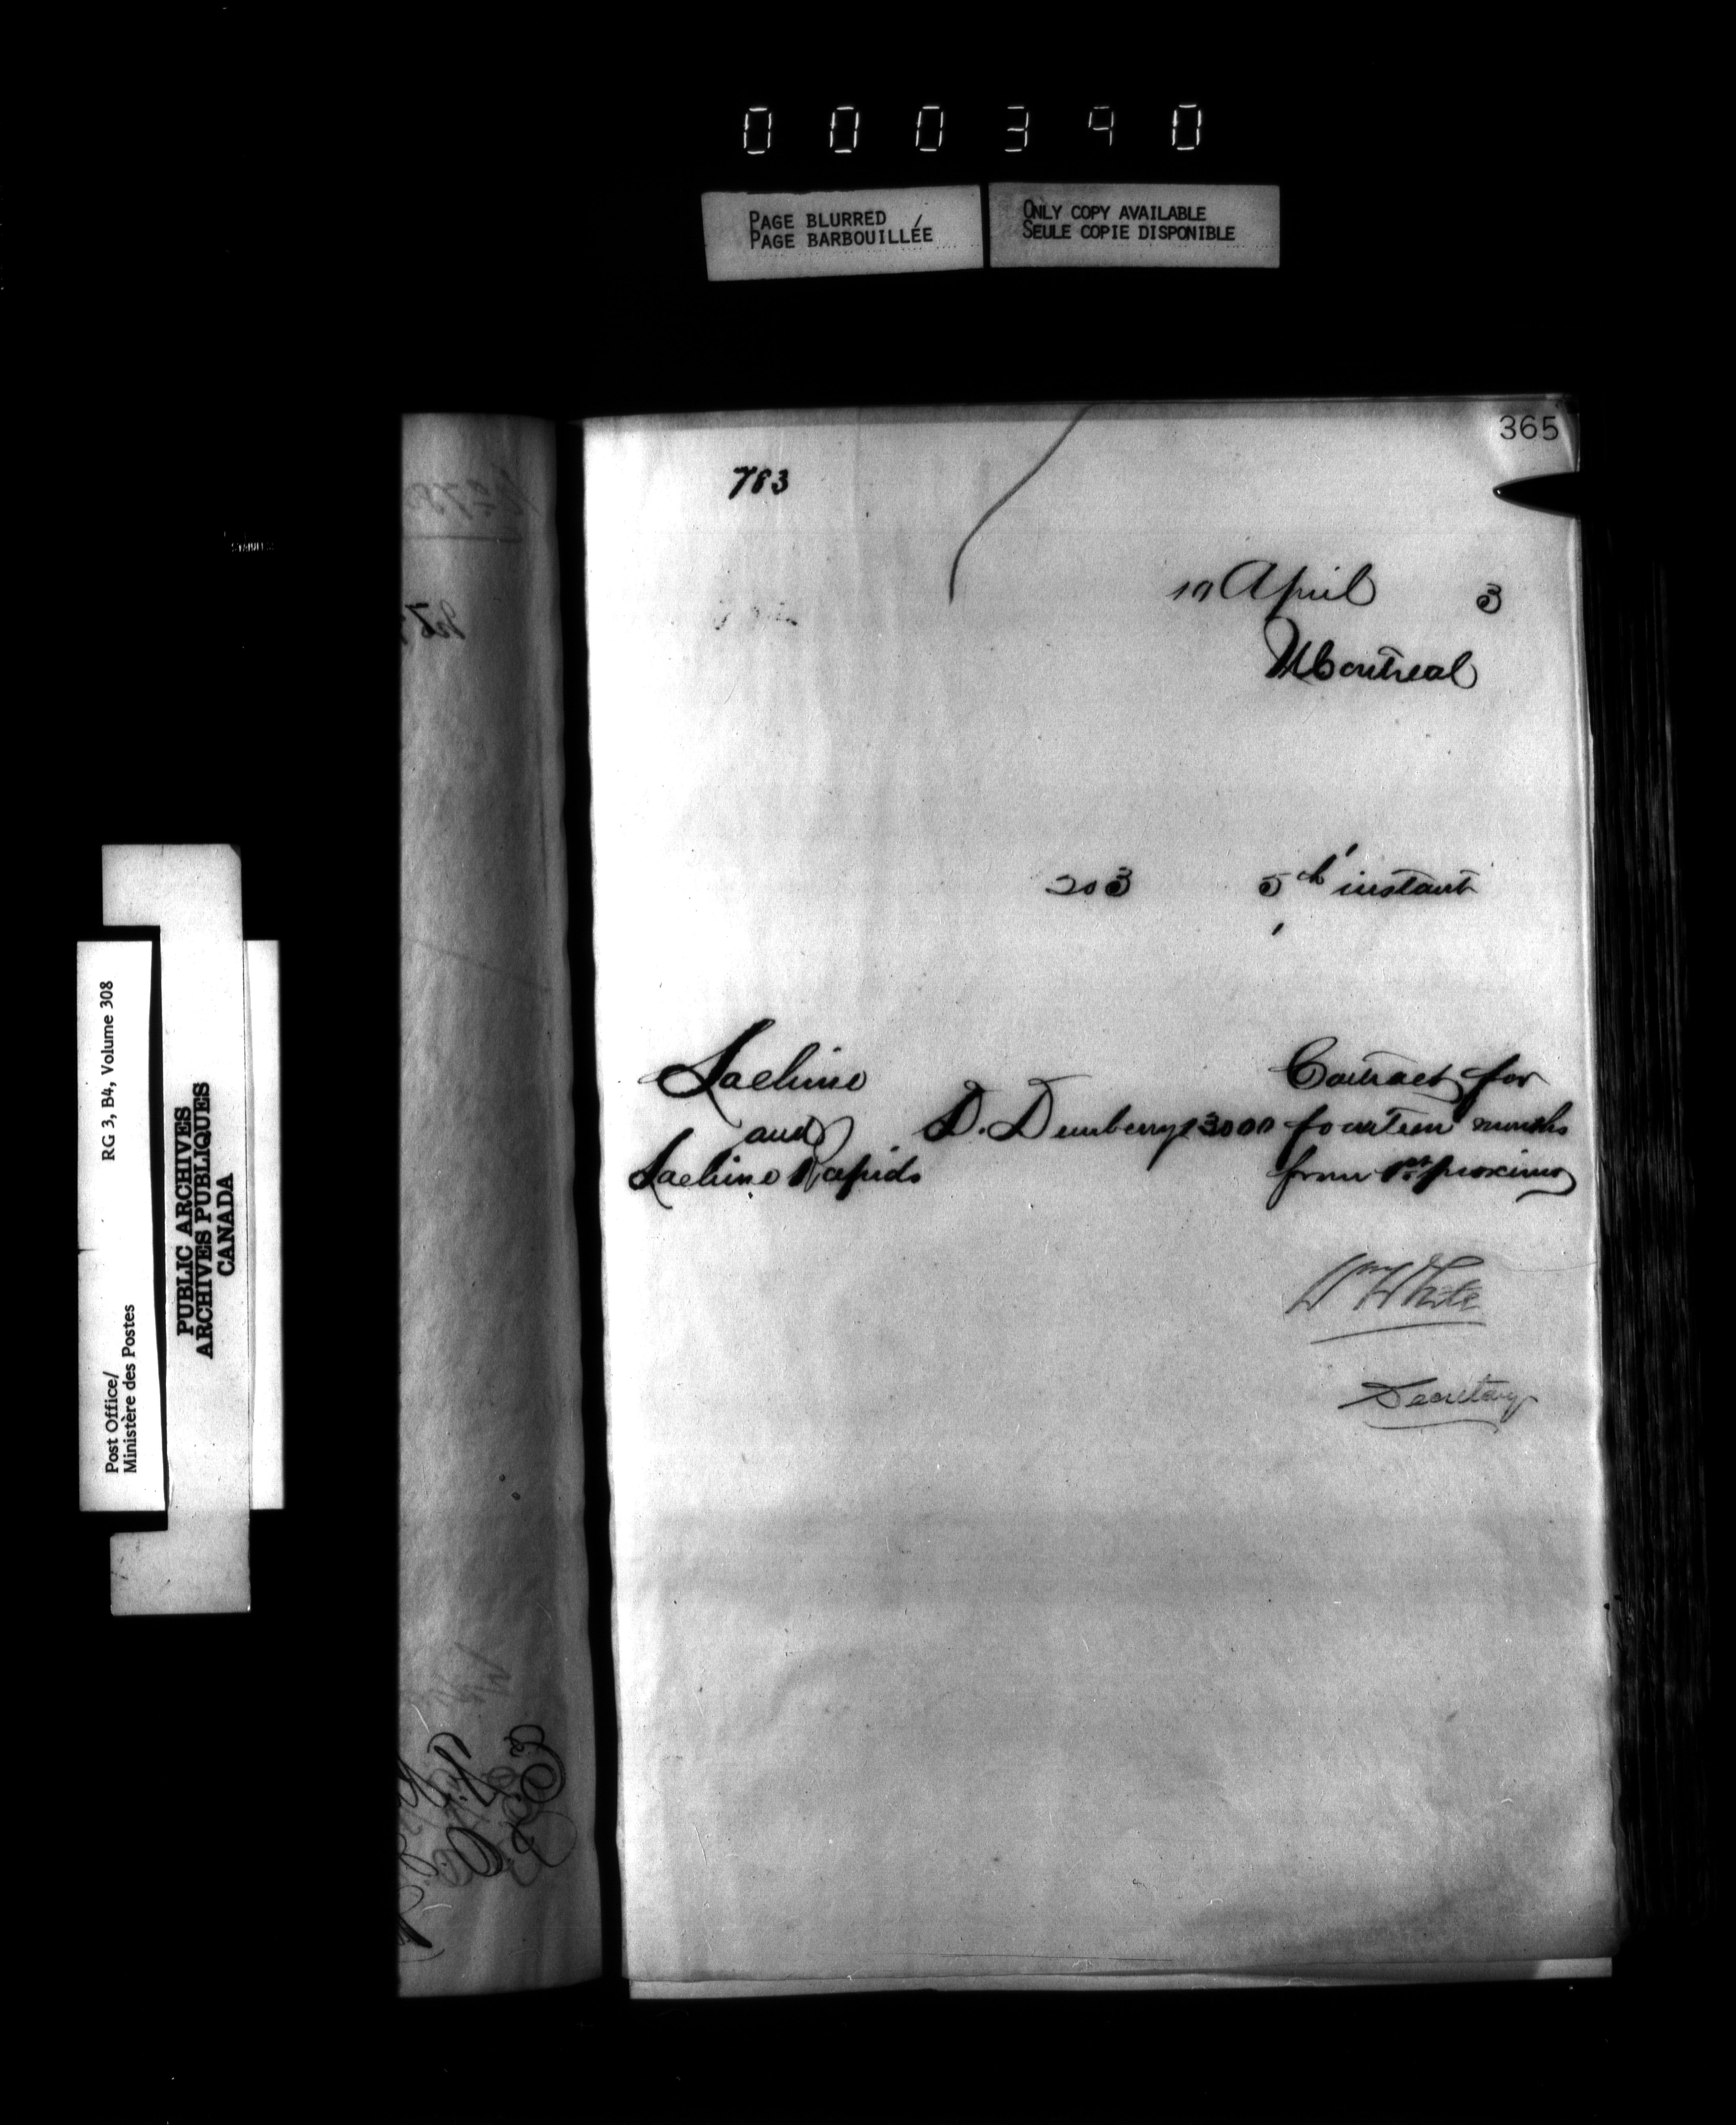 000340
PAGE BLURRED
PAGE BARBOUILLÉE
ONLY COPY AVAILABLE
SEULE COPIE DISPONIBLE
365
783
April 3
Montreal
203 5th instant
Lachine
and
Lachine Rapids
D. Dewberry 13000
Contract for
fourteen months
from 1st proximo
Wm White
Secretary
RG 3, B4, Volume 308
Post Office/
Ministère des Postes
PUBLIC ARCHIVES
ARCHIVES PUBLIQUES
CANADA